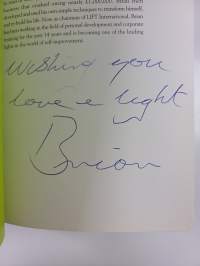 business that crashed owing nearly $1,200,000. Brian then
developed and used his own simple techniques to transform himself,
and re-build his life. Now, as chairman of LIFT International, Brian
has been working in the field of personal development and corporate
training for the past 14 years and is becoming one of the leading
lights in the world of self-improvement.
Wishing you
love & light
Brian